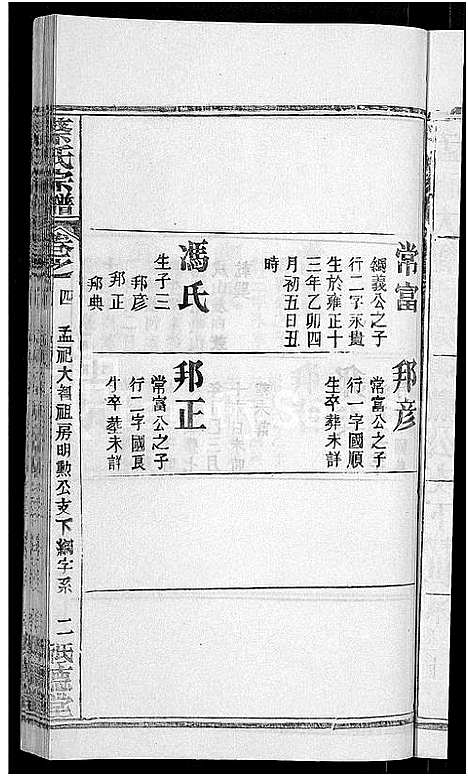 常富
綱義公之子
行二字永貴
生於雍正十
三年乙卯四
月初五日丑
時
馮氏
生子三
邦彥
邦正
邦典
邦彥
常富公之子
行一字國順
生卒葬未詳
邦正
常富公之子
行二字國良
生卒葬未詳
蔡氏宗譜
四
孟祀大智祖房明勳公支下綱字系
二